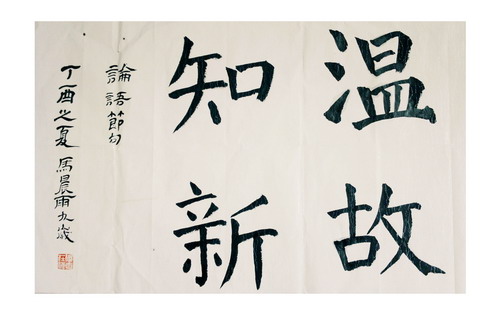 温故
知新
論語節句
丁酉之夏 馬晨雨九歲